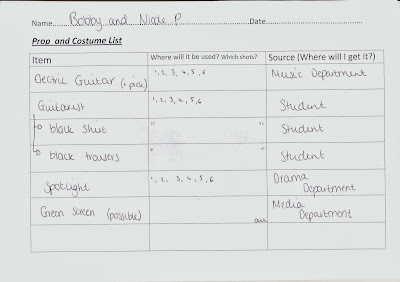 Name Bobby and Nicole P. Date
Prop and Costume List
Item Where will it be used? Which shots? Source (Where will I get it?)
Electric Guitar (+ pick) 1, 2, 3, 4, 5, 6 Music Department
Guitarist 1, 2, 3, 4, 5, 6 Student
black shirt " " Student
black trousers " " Student
Spotlight 1, 2, 3, 4, 5, 6 Drama
Department
Green Screen (possible) Media
Department